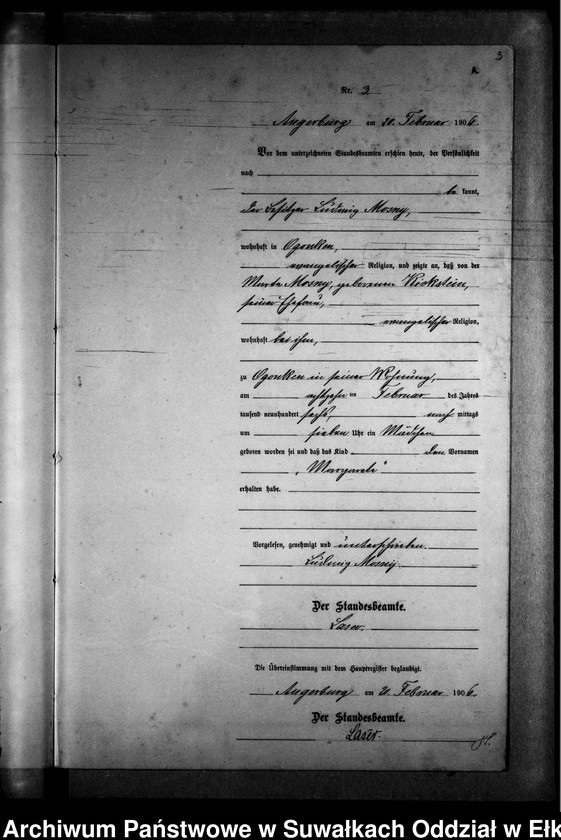 3
A.
Nr. 3.
Angerburg am 20. Februar 1906.
Vor dem unterzeichneten Standesbeamten erschien heute, der Persönlichkeit
nach
be kannt,
der Besitzer Ludwig Mosny,
wohnhaft in Ogonken,
evangelischer Religion, und zeigte an, daß von der
Marta Mosny, geborenen Kickstein,
seiner Ehefrau,
evangelischer Religion,
wohnhaft bei ihm,
zu Ogonken in seiner Wohnung,
am achtzehn ten Februar des Jahres
tausend neunhundert sechs, nach mittags
um sieben Uhr ein Mädchen
geboren worden sei und daß das Kind den Vornamen
„Margarete"
erhalten habe.
Vorgelesen, genehmigt und unterschrieben.
Ludwig Mosny
Der Standesbeamte.
Laser.
Die Übereinstimmung mit dem Hauptregister beglaubigt.
Angerburg am 20. Februar 1906.
Der Standesbeamte.
Laser.
Archiwum Państwowe w Suwałkach Oddział w Ełk